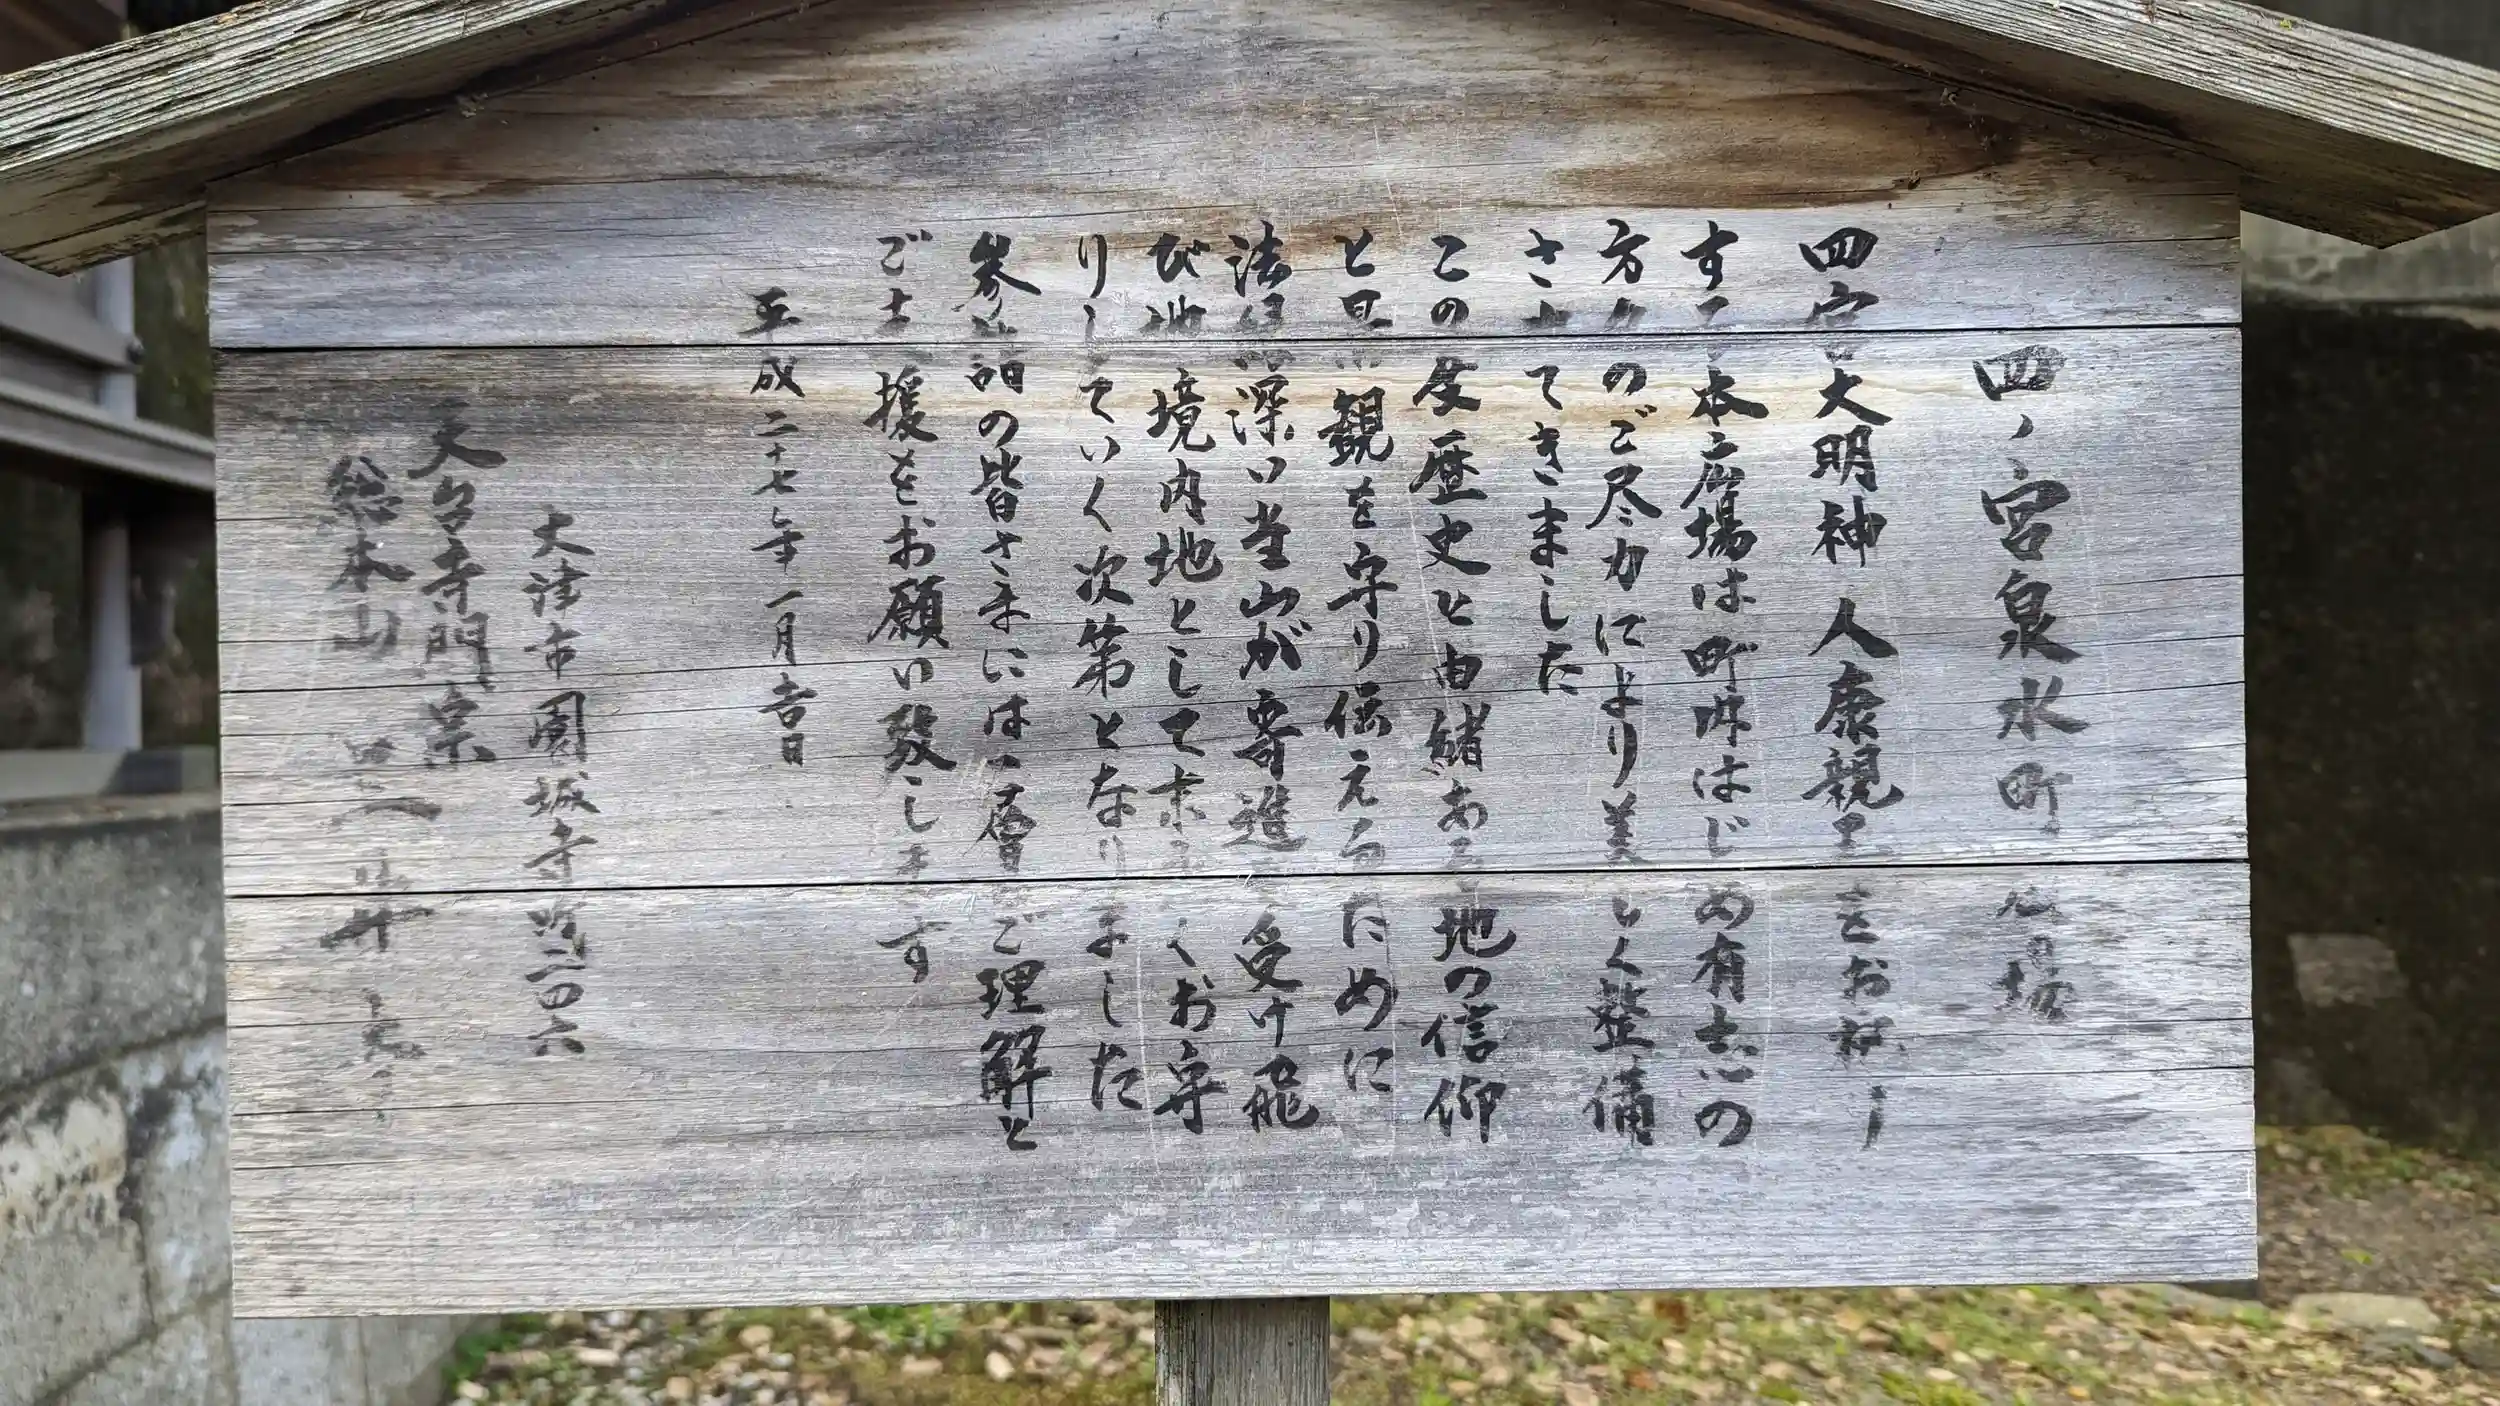 四ノ宮泉水町 広場
四宮大明神 人康親王をお祀り
する本広場は町内はじめ有志の
方々のご尽力により美しく整備
されてきました
この度歴史と由緒ある地の信仰
と景観を守り伝えるために
法縁深い当山が寄進を受け飛
び地境内地として末永くお守
りしていく次第となりました
参詣の皆さまには一層のご理解と
ご支援をお願い致します
平成二十七年一月吉日
大津市園城寺町二四六
天台寺門宗
総本山 三井寺